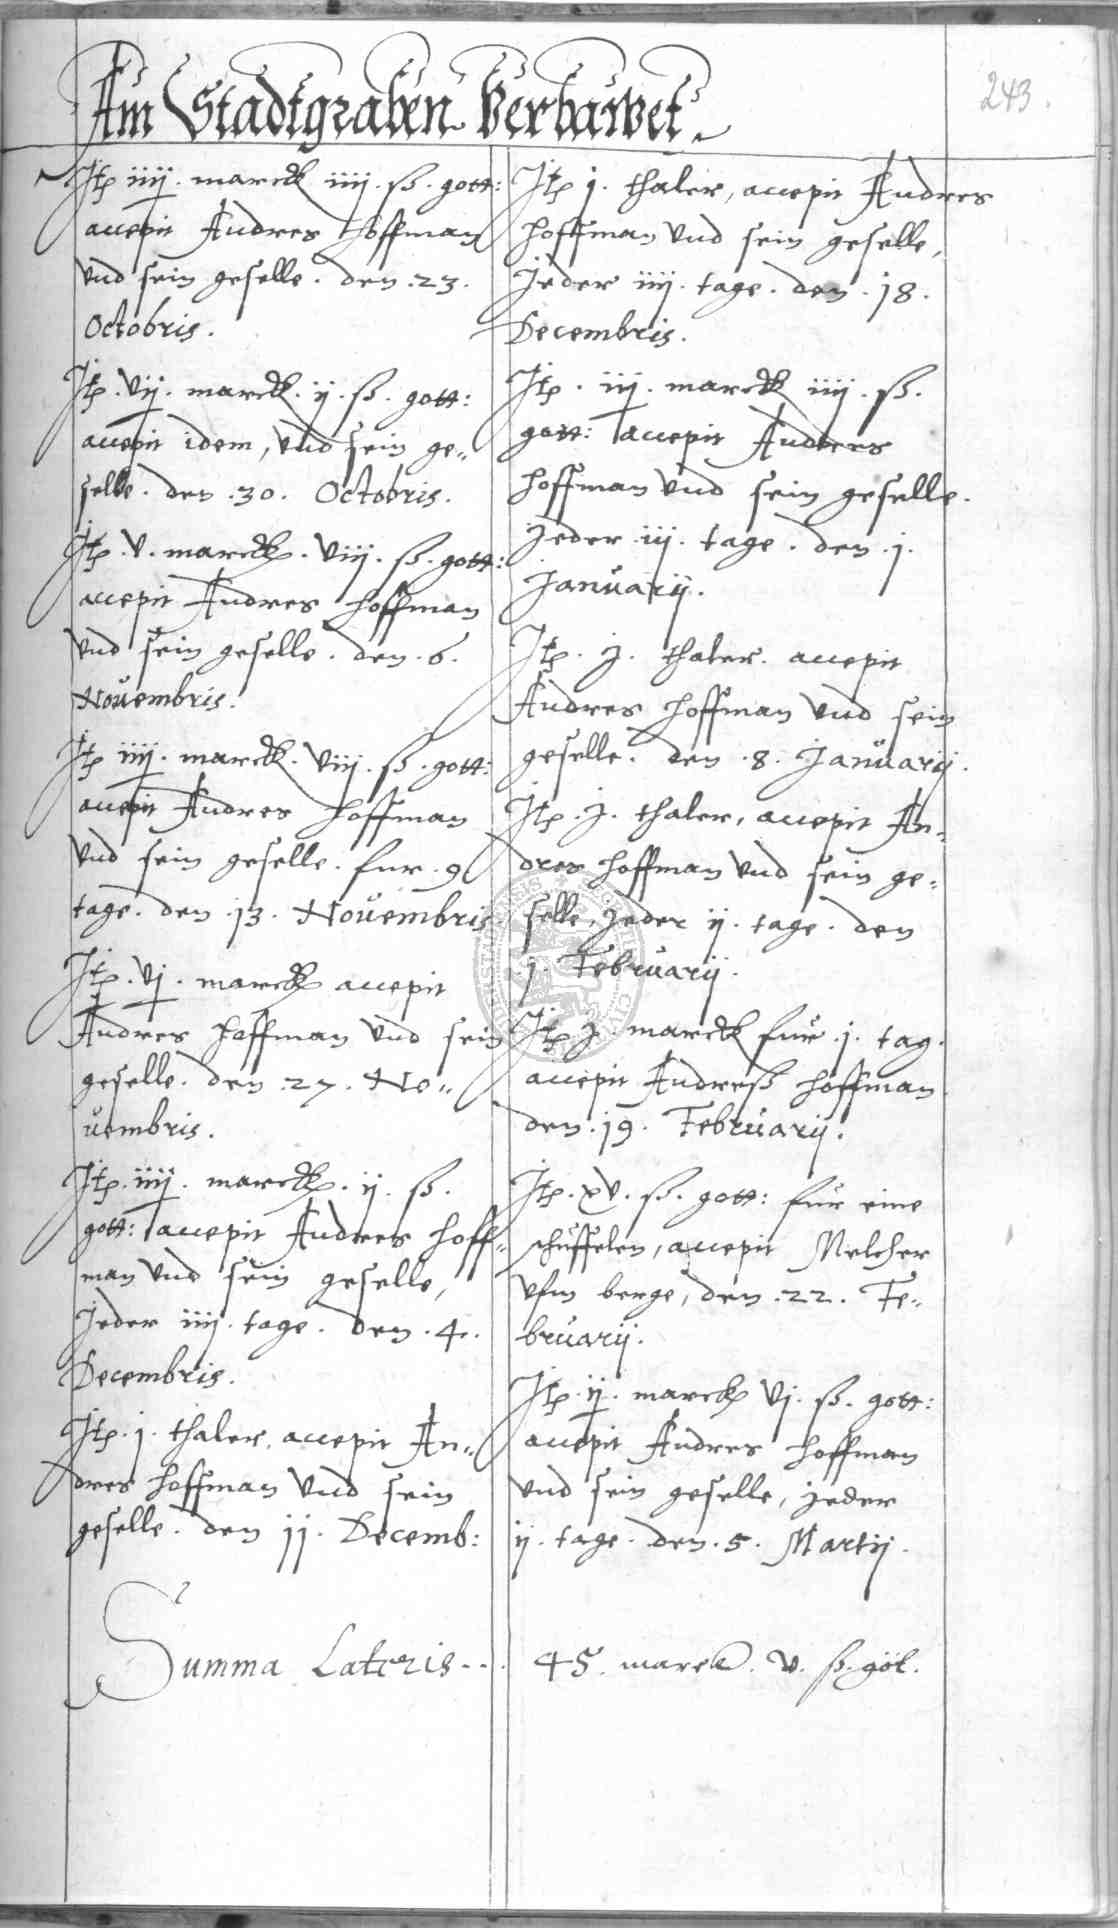 243.
Am Stadtgraben Verbawet.
Itp iiij. marck iiij. ß. gott:
accepit Andres Hoffman
vnd sein geselle. den .23.
Octobris.
Itp. vij. marck. ij. ß. gott:
accepit idem, vnd sein ge„
selle. den .30. Octobris.
Itp. v. marck. viij. ß. gott:
accepit Andres Hoffman
vnd sein geselle. den .6.
Nouembris.
Itp iiij. marck. viij. ß. gott:
accepit Andres Hoffman
vnd sein geselle. fur .9
tage. den .13. Nouembris.
Itp. vj. marck accepit
Andres Hoffman vnd sein
geselle. den .27. No„
uembris.
Itp. iiij. marck. ij. ß.
gott: accepit Andres Hoff„
man vnd sein geselle,
Jeder iiij. tage. den .4.
Decembris.
Itp. j. thaler, accepit An„
dres Hoffman vnd sein
geselle. den 11. Decemb:
Itp j. thaler, accepit Andres
Hoffman vnd sein geselle,
Jeder iiij. tage. den .18.
Decembris.
Itp. iij. marck iiij. ß.
gott: accepit Andres
Hoffman vnd sein geselle.
Jeder .iij. tage. den .j.
Januarij.
Itp. j. thaler. accepit
Andres Hoffman vnd sein
geselle. den .8. Januarij.
Itp. j. thaler, accepit An„
dres Hoffman vnd sein ge„
selle, Jeder ij. tage. den
.j. Februarij.
Itp j. marck fur .j. tag.
accepit Andreß Hoffman
den .19. Februarij.
Itp. xv. ß. gott: fur eine
schuffelen, accepit Melcher
vfm berge, den .22. Fe„
bruarij.
Itp. ij. marck vj. ß. gott:
accepit Andres Hoffman
vnd sein geselle, jeder
ij. tage. den .5. Martij.
Summa Lateris... 45. marck. v. ß. göt.